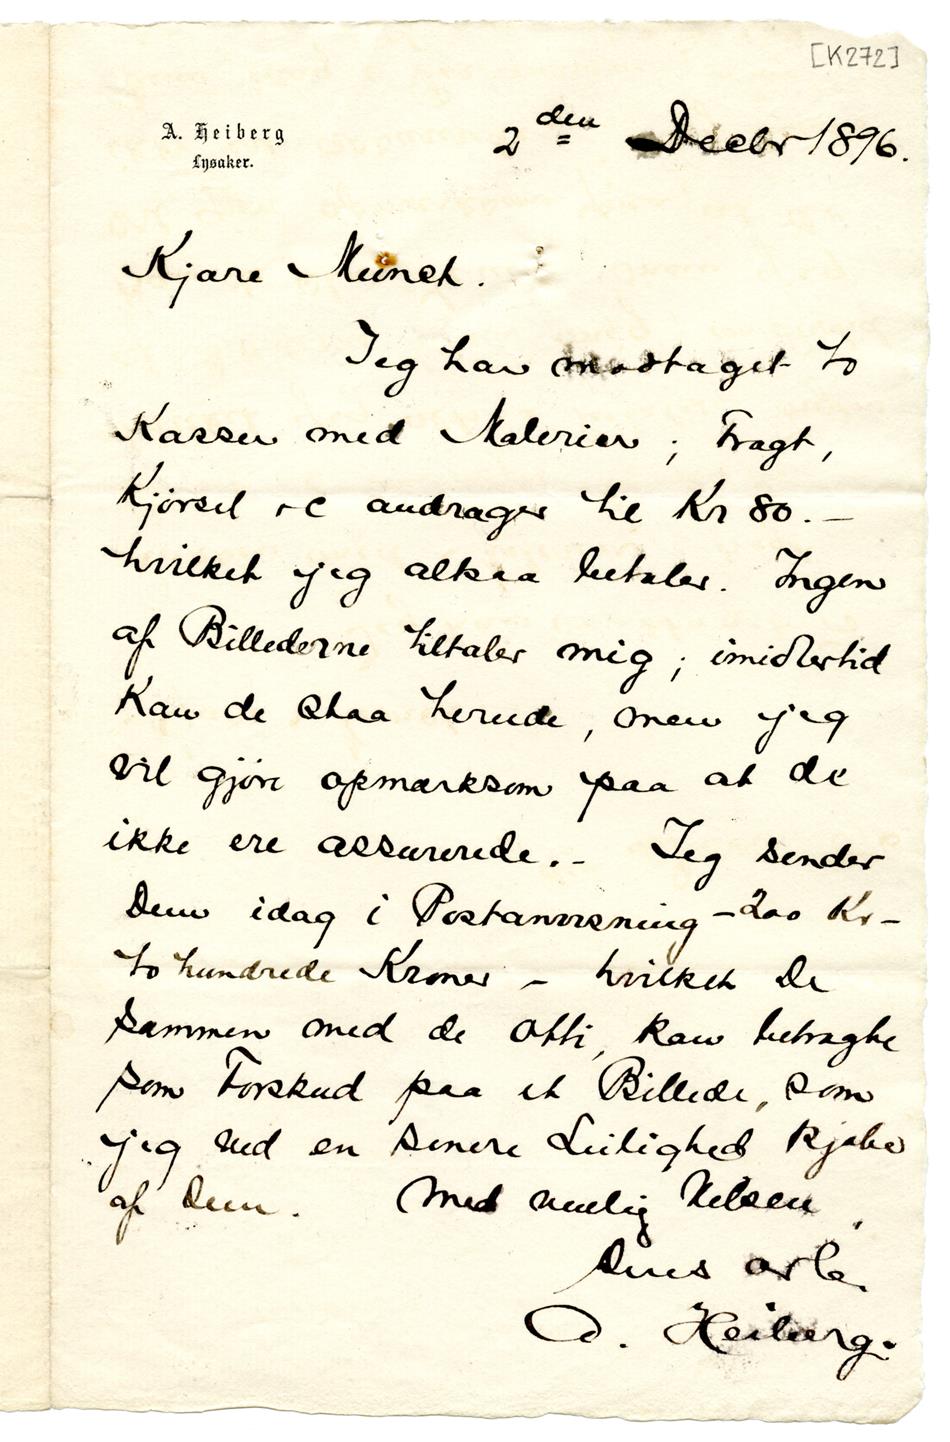 [K272]
A. Heiberg
Lysaker.
2den Decbr 1896.
Kjære Munch.
Jeg har modtaget to
Kasser med Malerier; Fragt,
Kjørsel &c andrager til Kr 80.—
hvilket jeg altsaa betaler. Ingen
af Billederne tiltaler mig; imidlertid
kan de staa herude, men jeg
vil gjøre opmærksom paa at de
ikke ere assurerede.— Jeg sender
Dem idag i Postanvisning — 200 Kr —
to hundrede Kroner — hvilket De
sammen med de otti, kan betragte
som Forskud paa et Billede, som
jeg ved en senere Leilighed kjøber
af Dem. Med venlig Hilsen,
Deres
A. Heiberg.